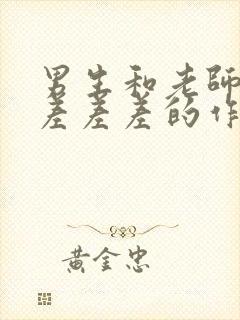 男生和老师
差差差的作
黄金忠